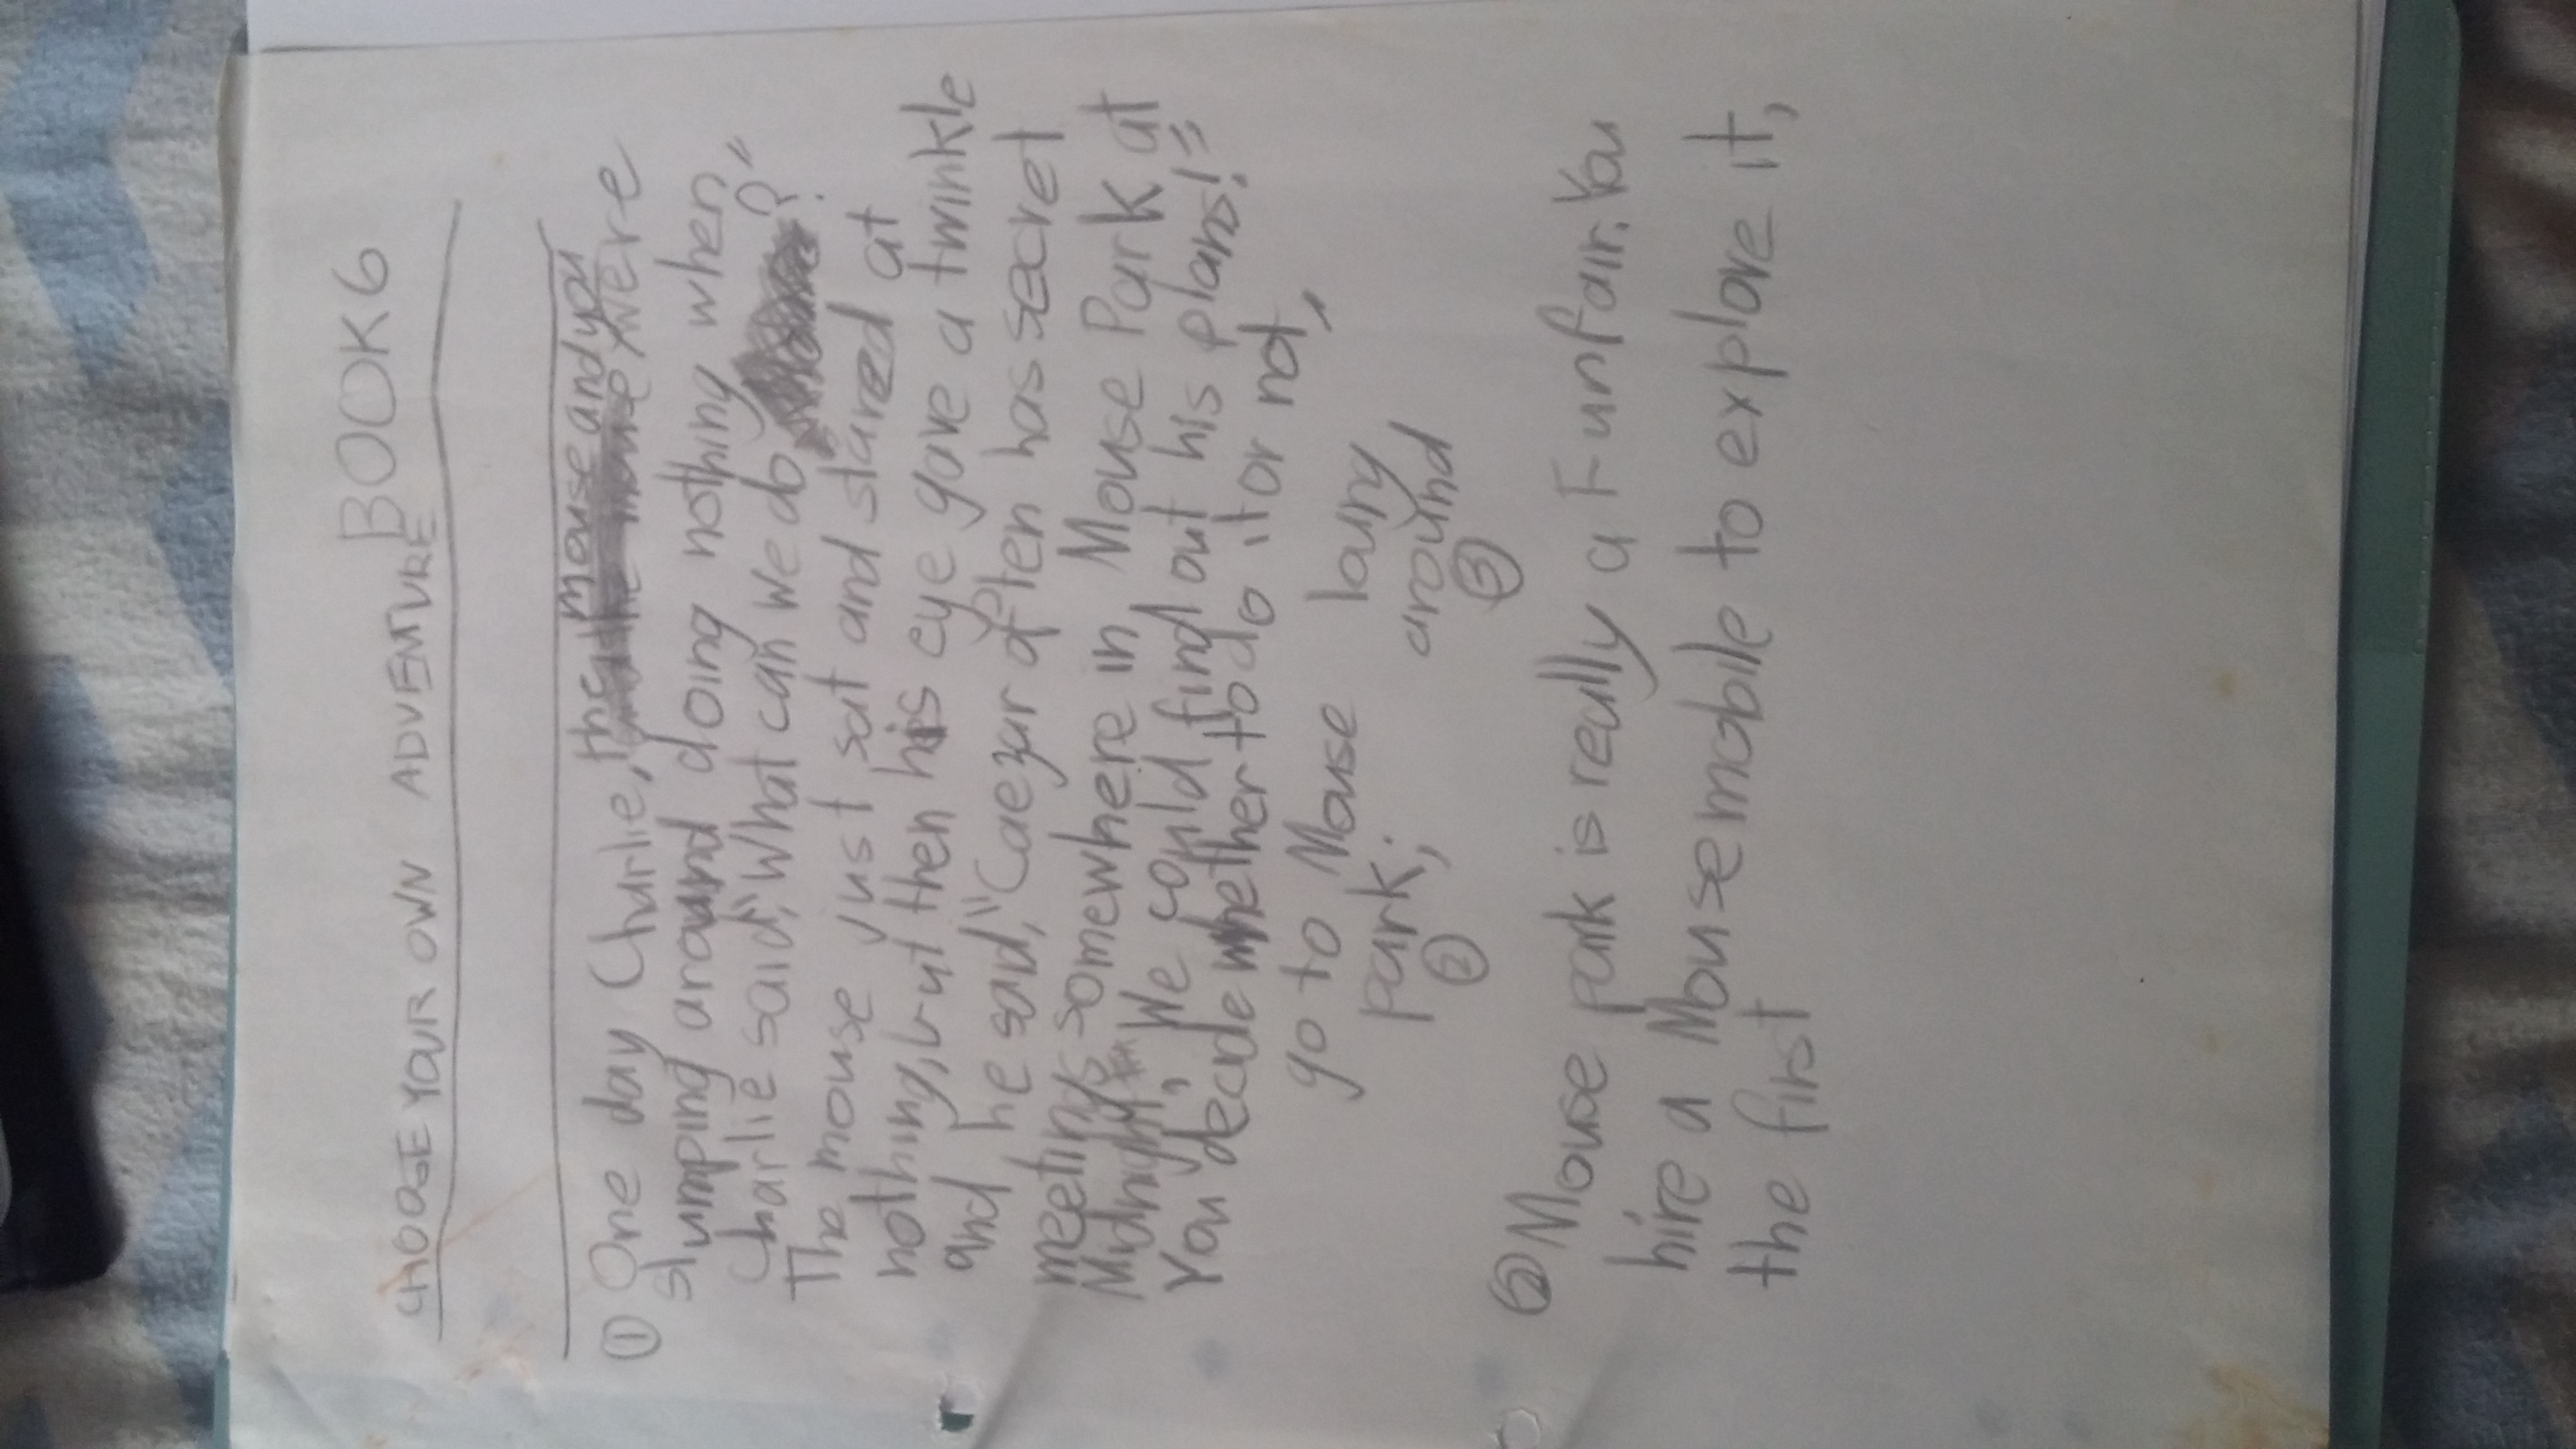 BOOK 6
CHOOSE YOUR OWN ADVENTURE
① One day Charlie, the mouse and you were
slumping around doing nothing when
Charlie said, "What can we do?"
The mouse just sat and stared at
nothing, but then his eye gave a twinkle
and he said, "Caezar often has secret
meetings somewhere in Mouse Park at
Midnight. We could find out his plans!"
You decide whether to do it or not,
go to Mouse
park;
②
loung
around
③
② Mouse park is really a Funfair. You
hire a Mousemobile to explore it,
the first